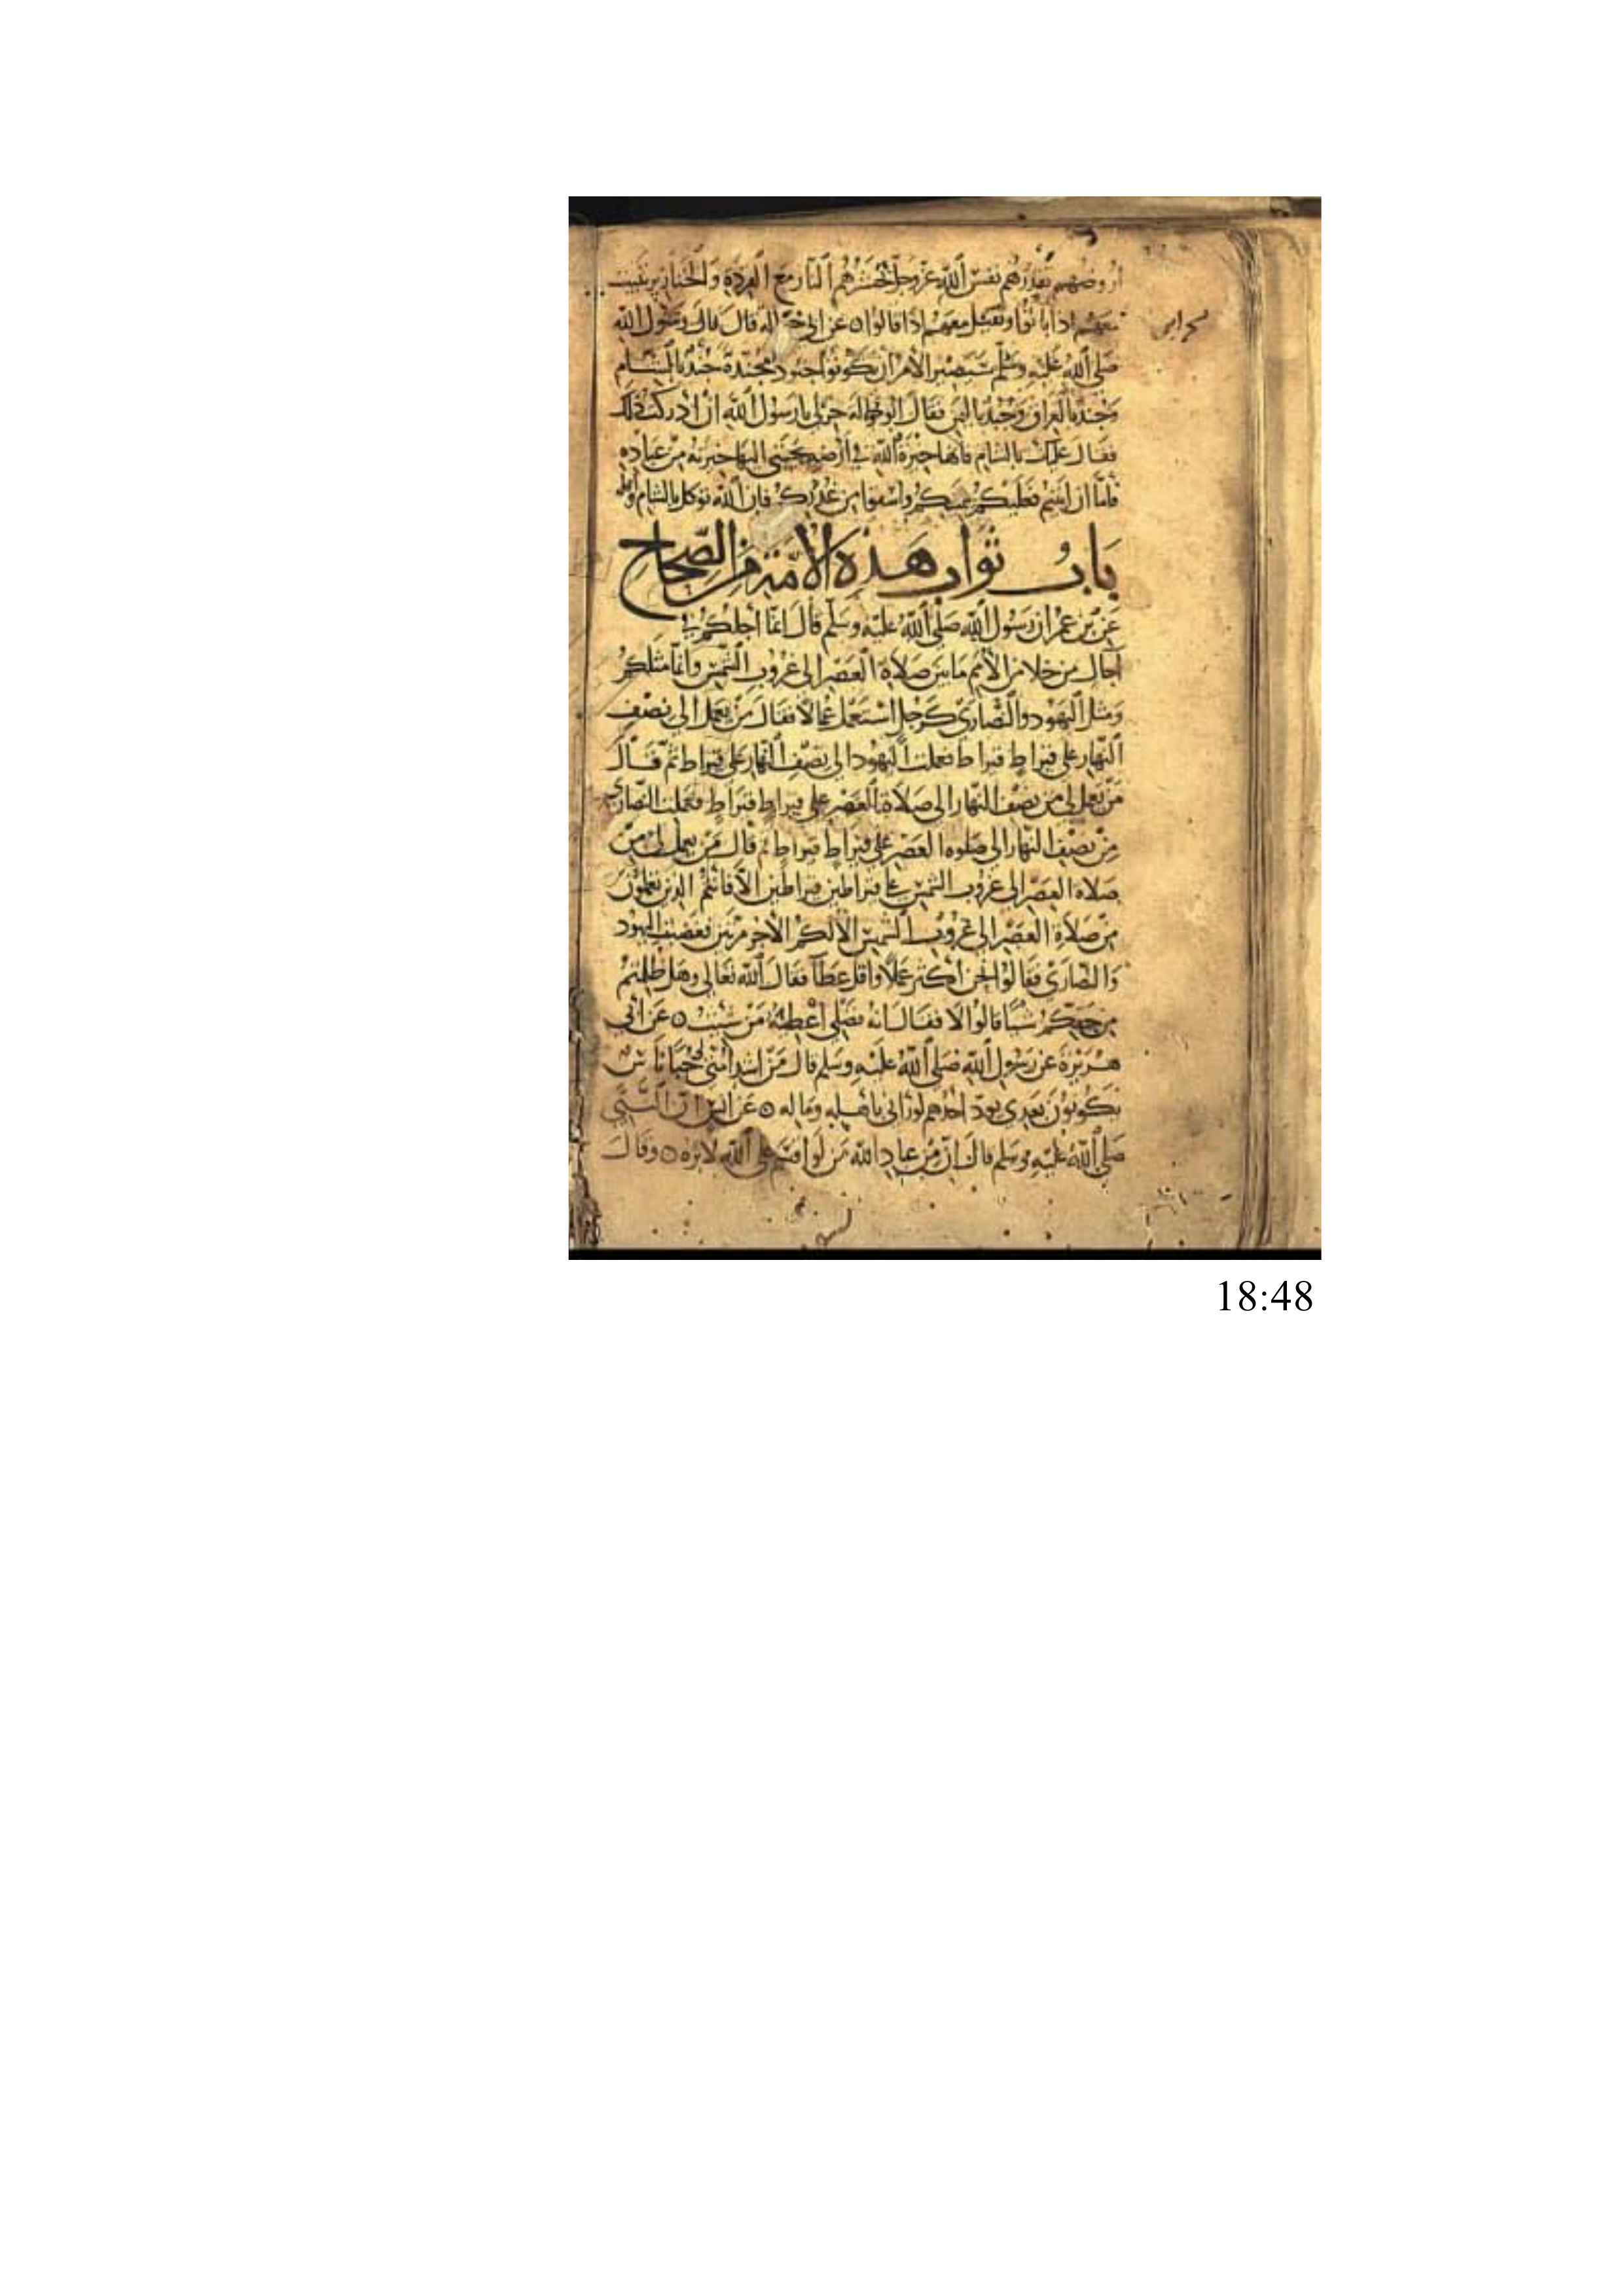 ارضوهم تقذرهم نفس الله عز وجل تحشرهم النار مع القردة والخنازير تبيت
معهم اذا باتوا وتقيل معهم اذا قالوا ٥ عن ابن حوالة قال قال رسول الله
صلى الله عليه وسلم سيصير الامر ان تكونوا جنودا مجندة جند بالشام
وجند بالعراق وجند باليمن فقال ابن حوالة خر لي يا رسول الله ان ادركت ذلك
فقال عليك بالشام فانها خيرة الله في ارضه يجتبي اليها خيرته من عباده
فاما ان ابيتم فعليكم بيمنكم واسقوا من غدركم فان الله توكل بالشام واهله
باب ثواب هذه الامة من الصحاح
عن بن عمر ان رسول الله صلى الله عليه وسلم قال انما اجلكم في
آجال من خلا من الامم ما بين صلاة العصر الى غروب الشمس وانما مثلكم
ومثل اليهود والنصارى كرجل استعمل عمالا فقال من يعمل الى نصف
النهار على قيراط قيراط فعملت اليهود الى نصف النهار على قيراط ثم قال
من يعمل لي من نصف النهار الى صلاة العصر على قيراط قيراط فعملت النصارى
من نصف النهار الى صلوة العصر على قيراط قيراط ثم قال من يعمل لي من
صلاة العصر الى غروب الشمس على قيراطين قيراطين الا فانتم الذين تعملون
من صلاة العصر الى غروب الشمس الا لكم الاجر مرتين فغضبت اليهود
والنصارى فقالوا نحن اكثر عملا واقل عطآ فقال الله تعالى وهل ظلمتكم
من حقكم شيئا قالوا لا فقال انه فضلي اعطيه من شئت ٥ عن ابي
هريرة عن رسول الله صلى الله عليه وسلم قال من اشد امتي لي حبا ناس
يكونون بعدي يود احدهم لو رآني باهله وماله ٥ عن انس ان النبي
صلى الله عليه وسلم قال ان من عباد الله من لو اقسم على الله لابره ٥ وقال
18:48